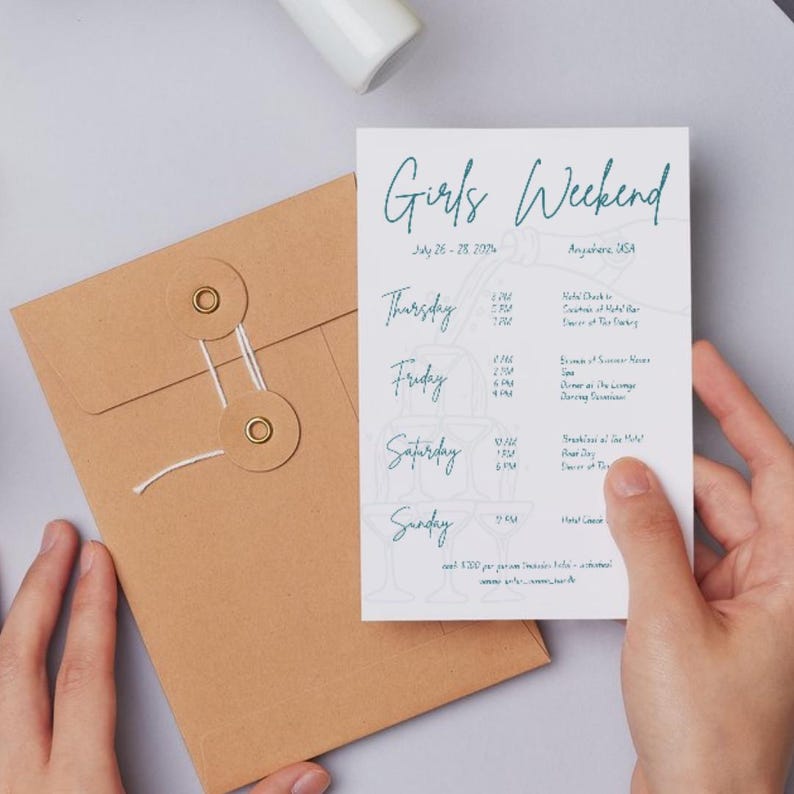 Girls Weekend
July 26 - 28, 2024 Anywhere, USA
Thursday
PM Hotel Check In
5 PM Cocktails at Hotel Bar
7 PM Dinner at The Darling
Friday
11 AM Brunch at Summer House
2 PM Spa
6 PM Dinner at The Lounge
9 PM Dancing Downtown
Saturday
10 AM Breakfast at The Hotel
1 PM Boat Day
6 PM Dinner at The
Sunday
12 PM Hotel Check
cost: $700 per person (includes hotel + activities)
venmo: enter_venmo_handle